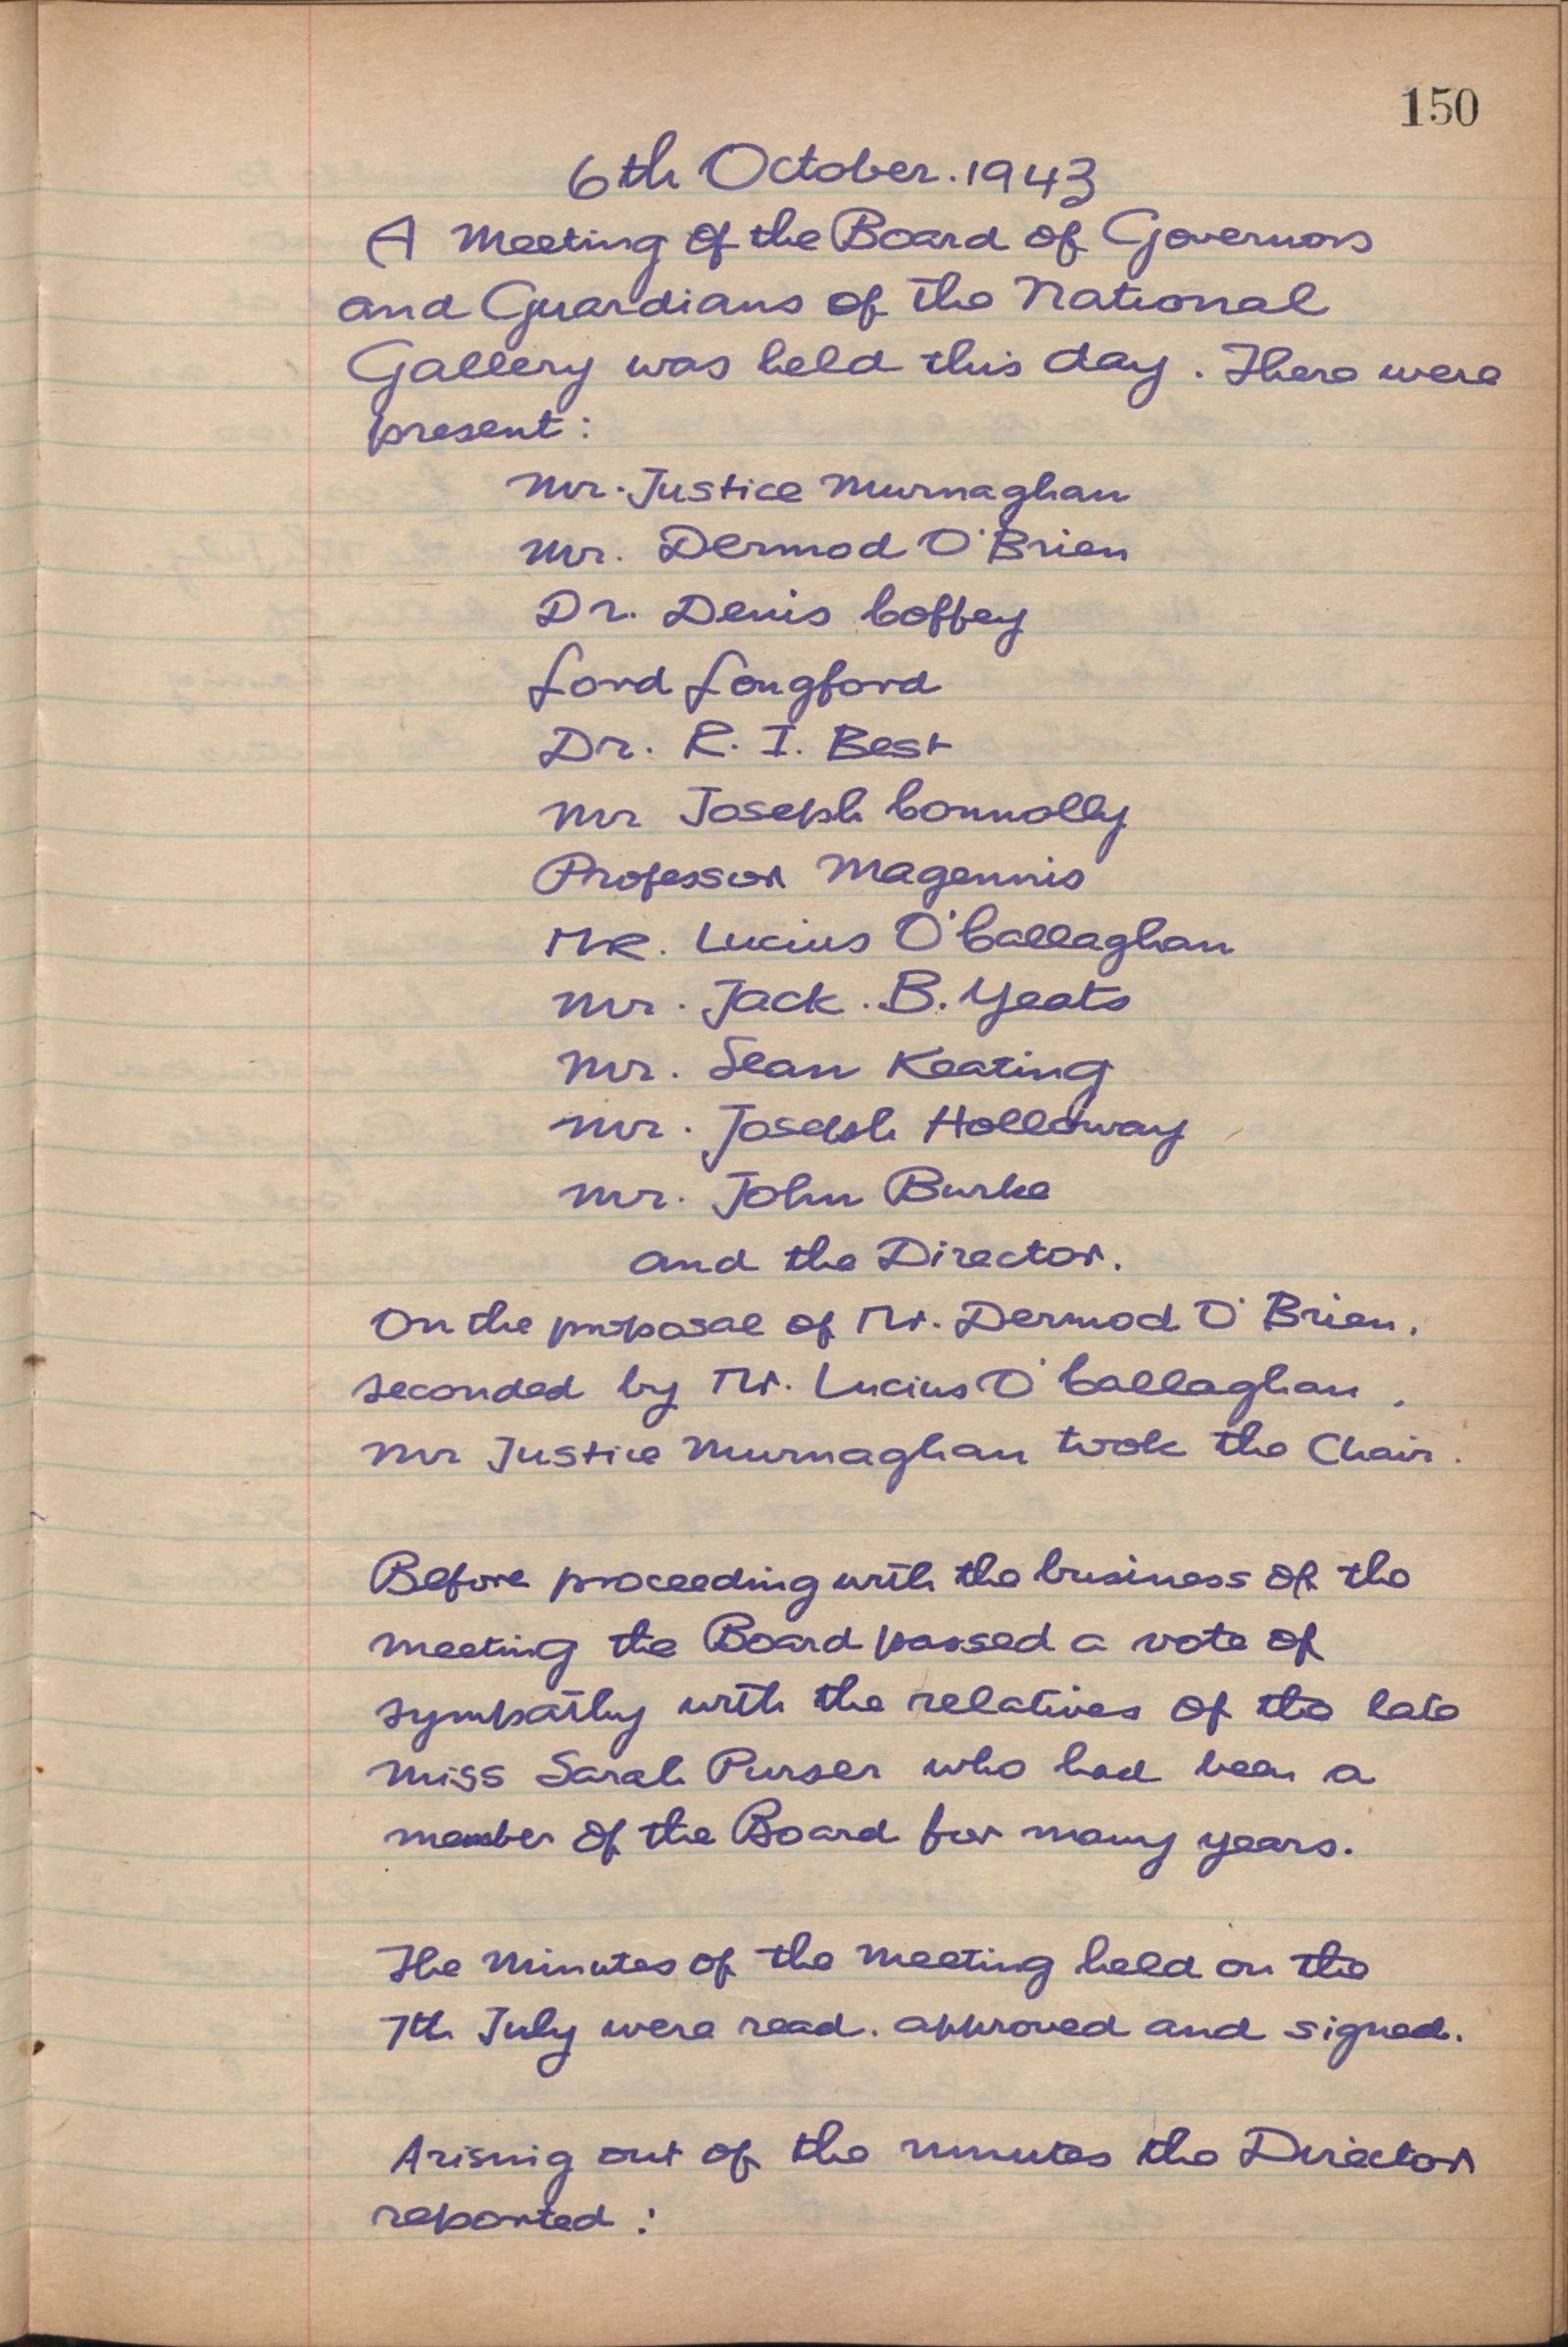 150
6th October. 1943
A Meeting of the Board of Governors
and Guardians of the National
Gallery was held this day. There were
present:
Mr. Justice Murnaghan
Mr. Dermod O'Brien
Dr. Denis Coffey
Lord Longford
Dr. R. I. Best
Mr Joseph Connolly
Professor Magennis
MR. Lucius O'Callaghan
Mr. Jack. B. Yeats
Mr. Sean Keating
Mr. Joseph Holloway
Mr. John Burke
and the Director.
On the proposal of Mr. Dermod O'Brien,
seconded by Mr. Lucius O'Callaghan,
Mr Justice Murnaghan took the Chair.
Before proceeding with the business of the
meeting the Board passed a vote of
sympathy with the relatives of the late
Miss Sarah Purser who had been a
member of the Board for many years.
The Minutes of the Meeting held on the
7th July were read. approved and signed.
Arising out of the minutes the Director
reported: